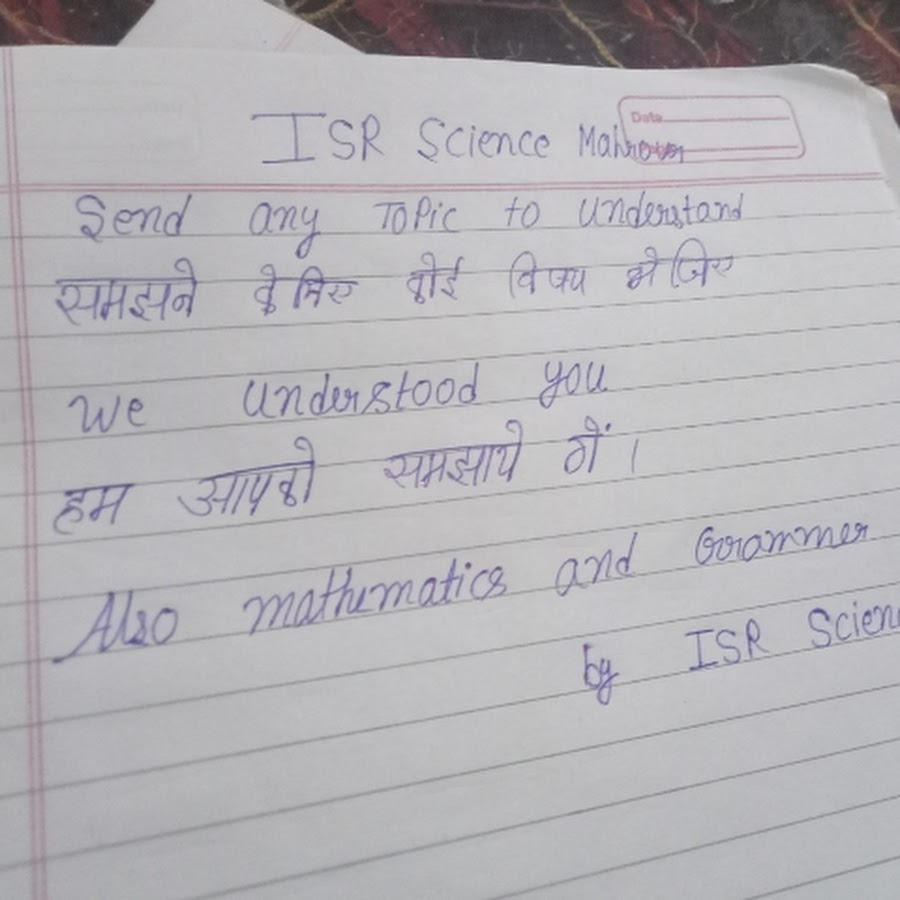 ISR Science
Date
Send any Topic to Understand
समझने के लिए कोई विषय भेजिए
We Understood you
हम आपको समझाये गें।
Also mathematics and Grammer
by ISR Scien